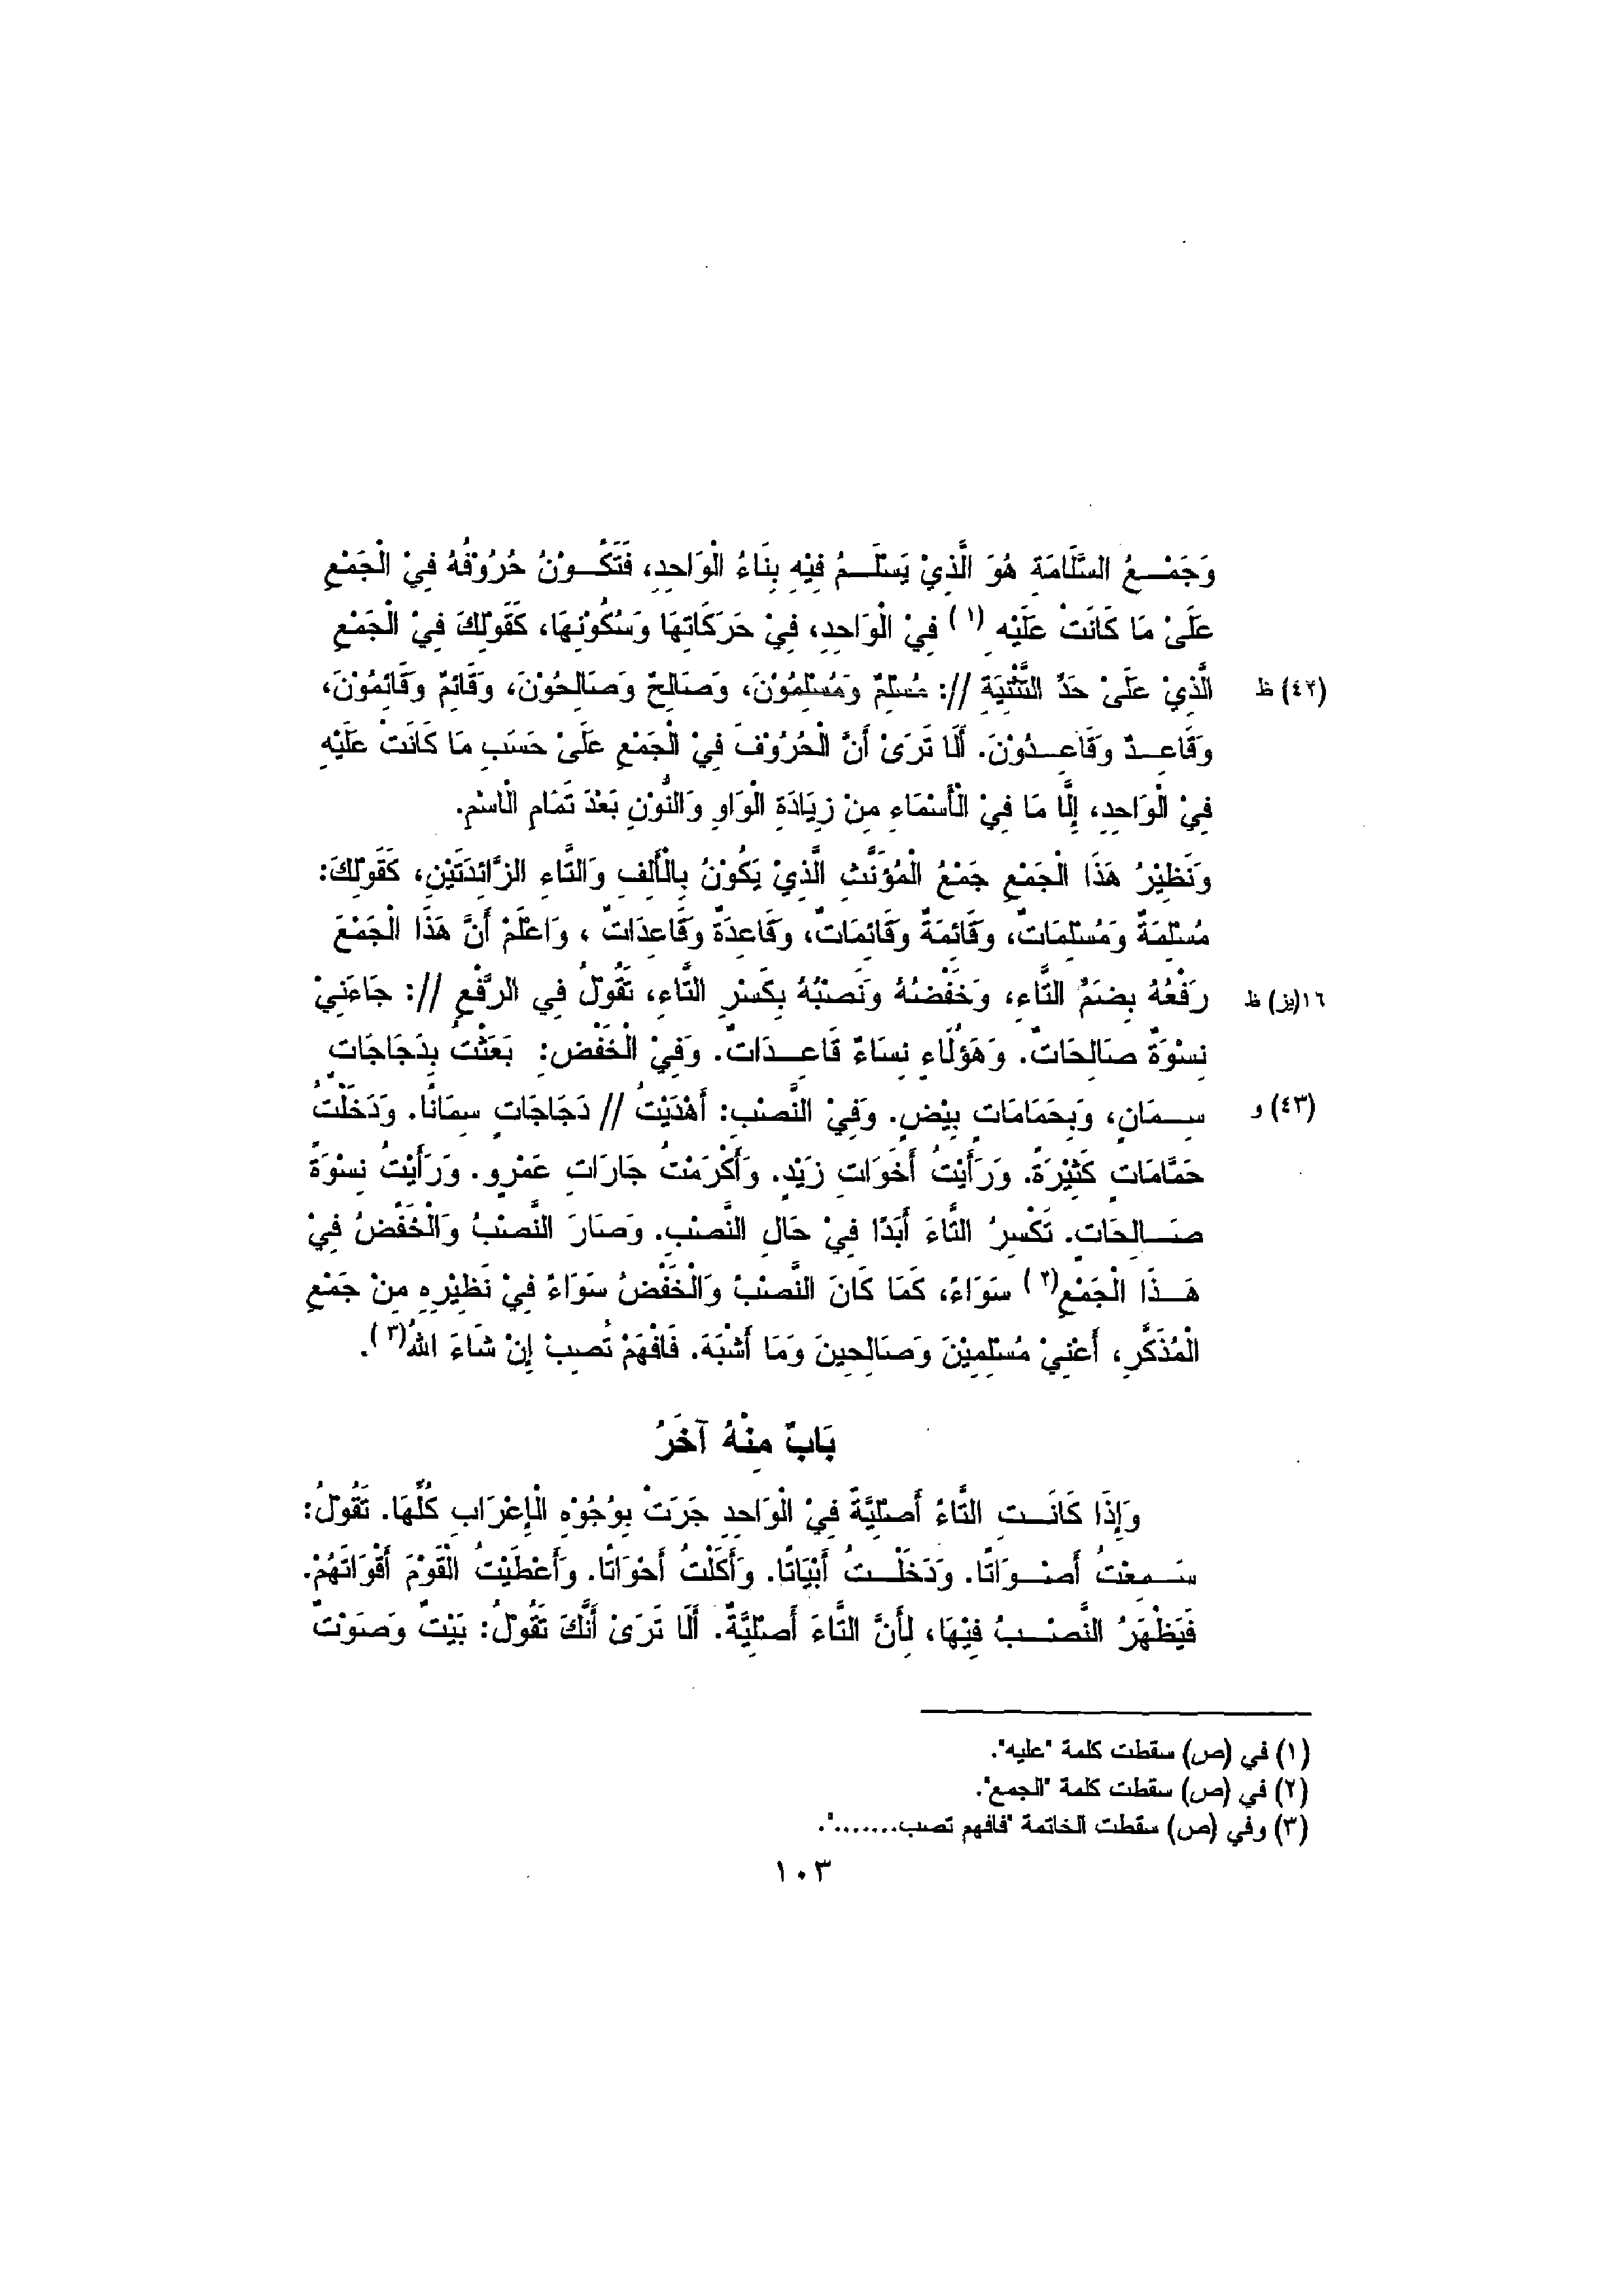 وَجَمْـــعُ السَّلَامَةِ هُوَ الَّذِيْ يَسْلَـــمُ فِيْهِ بِنَاءُ الْوَاحِدِ، فَتَكُـــوْنُ حُرُوْفُهُ فِيْ الْجَمْعِ
عَلَىْ مَا كَانَتْ عَلَيْهِ (١) فِيْ الْوَاحِدِ، فِيْ حَرَكَاتِهَا وَسُكُوْنِهَا، كَقَوْلِكَ فِيْ الْجَمْعِ
(٤٢) ظ الَّذِيْ عَلَىْ حَدِّ التَّثْنِيَةِ //: مُسْلِمٌ وَمُسْلِمُوْنَ، وَصَالِحٌ وَصَالِحُوْنَ، وَقَائِمٌ وَقَائِمُوْنَ،
وَقَاعِـــدٌ وَقَاعِـــدُوْنَ. أَلَا تَرَىْ أَنَّ الْحُرُوْفَ فِيْ الْجَمْعِ عَلَىْ حَسَبِ مَا كَانَتْ عَلَيْهِ
فِيْ الْوَاحِدِ، إِلَّا مَا فِيْ الْأَسْمَاءِ مِنْ زِيَادَةِ الْوَاوِ وَالنُّوْنِ بَعْدَ تَمَامِ الْاسْمِ.
وَنَظِيْرُ هَذَا الْجَمْعِ جَمْعُ الْمُؤَنَّثِ الَّذِيْ يَكُوْنُ بِالْأَلِفِ وَالتَّاءِ الزَّائِدَتَيْنِ، كَقَوْلِكَ:
مُسْلِمَةٌ وَمُسْلِمَاتٌ، وَقَائِمَةٌ وَقَائِمَاتٌ، وَقَاعِدَةٌ وَقَاعِدَاتٌ ، وَاعْلَمْ أَنَّ هَذَا الْجَمْعَ
١٦(يز) ظ رَفْعُهُ بِضَمِّ التَّاءِ، وَخَفْضُهُ وَنَصْبُهُ بِكَسْرِ التَّاءِ، تَقُوْلُ فِي الرَّفْعِ //: جَاءَنِيْ
نِسْوَةٌ صَالِحَاتٌ. وَهَؤُلَاءِ نِسَاءٌ قَاعِـــدَاتٌ. وَفِيْ الْخَفْضِ: بَعَثْتُ بِدَجَاجَاتٍ
(٤٣) و سِـــمَانٍ، وَبِحَمَامَاتٍ بِيْضٍ. وَفِيْ النَّصْبِ: أَهْدَيْتُ // دَجَاجَاتٍ سِمَانًا. وَدَخَلْتُ
حَمَّامَاتٍ كَثِيْرَةً. وَرَأَيْتُ أَخَوَاتِ زَيْدٍ. وَأَكْرَمْتُ جَارَاتِ عَمْرٍو. وَرَأَيْتُ نِسْوَةً
صَـــالِحَاتٍ. تَكْسِرُ التَّاءَ أَبَدًا فِيْ حَالِ النَّصْبِ. وَصَارَ النَّصْبُ وَالْخَفْضُ فِيْ
هَـــذَا الْجَمْعِ(٢) سَوَاءً، كَمَا كَانَ النَّصْبُ وَالْخَفْضُ سَوَاءً فِيْ نَظِيْرِهِ مِنْ جَمْعِ
الْمُذَكَّرِ، أَعْنِيْ مُسْلِمِيْنَ وَصَالِحِينَ وَمَا أَشْبَهَ. فَافْهَمْ تُصِبْ إِنْ شَاءَ اللهُ(٣).
بَابٌ مِنْهُ آخَرُ
وَإِذَا كَانَـــتِ التَّاءُ أَصْلِيَّةً فِيْ الْوَاحِدِ جَرَتْ بِوُجُوْهِ الْإِعْرَابِ كُلِّهَا. تَقُوْلُ:
سَـــمِعْتُ أَصْـــوَاتًا. وَدَخَلْـــتُ أَبْيَاتًا. وَأَكَلْتُ أَحْوَاتًا. وَأَعْطَيْتُ الْقَوْمَ أَقْوَاتَهُمْ.
فَيَظْهَرُ النَّصْـــبُ فِيْهَا، لِأَنَّ التَّاءَ أَصْلِيَّةٌ. أَلَا تَرَىْ أَنَّكَ تَقُوْلُ: بَيْتٌ وَصَوْتٌ
(١) في (ص) سقطت كلمة "عليه".
(٢) في (ص) سقطت كلمة "الجمع".
(٣) وفي (ص) سقطت الخاتمة "فافهم تصب.......".
١٠٣